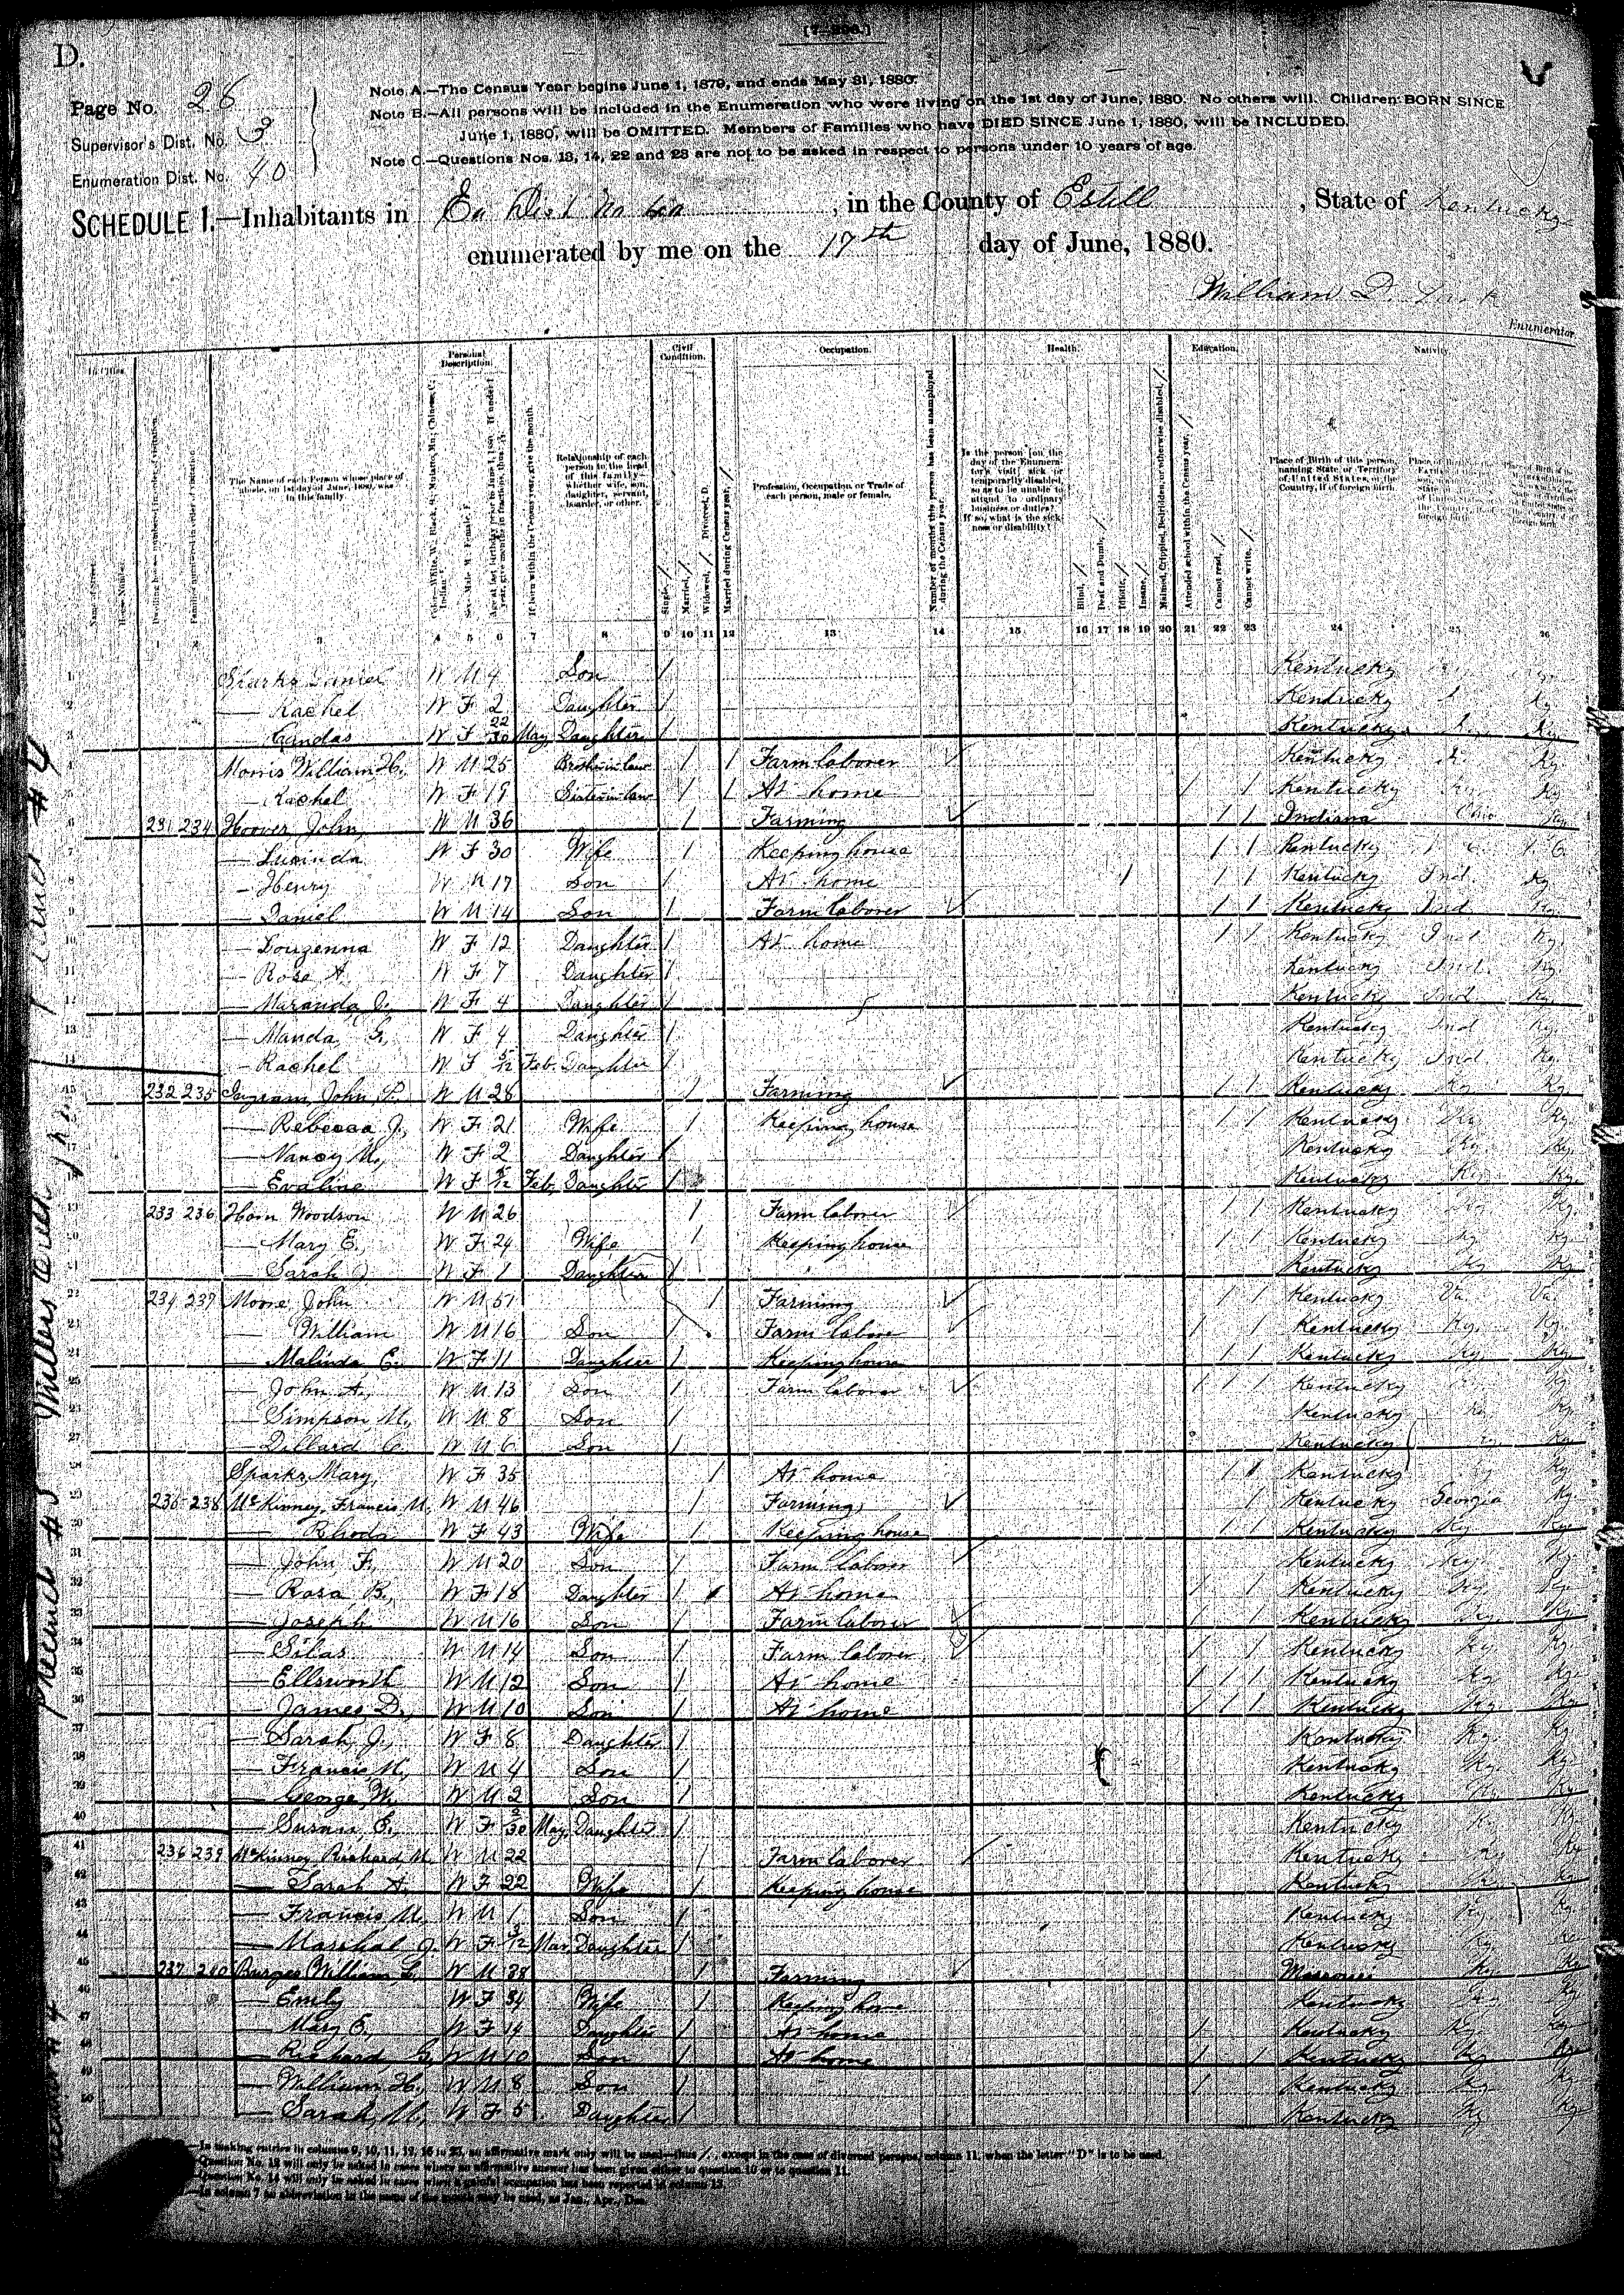 D.
[7-296.]
Page No. 26
Supervisor's Dist. No. 3
Enumeration Dist. No. 40
Note A.—The Census Year begins June 1, 1879, and ends May 31, 1880.
Note B.—All persons will be included in the Enumeration who were living on the 1st day of June, 1880. No others will. Children BORN SINCE
June 1, 1880, will be OMITTED. Members of Families who have DIED SINCE June 1, 1880, will be INCLUDED.
Note C.—Questions Nos. 13, 14, 22 and 23 are not to be asked in respect to persons under 10 years of age.
SCHEDULE 1.—Inhabitants in , in the County of Estill , State of Kentucky
enumerated by me on the 17th day of June, 1880.
William D.
Enumerator.
Personal Description. Civil Condition. Occupation. Health. Education. Nativity.
The Name of each Person whose place of abode, on 1st day of June, 1880, was in this family.
Relationship of each person to the head of this family—whether wife, son, daughter, servant, boarder, or other.
Profession, Occupation or Trade of each person, male or female.
Is the person [on the day of the Enumerator's visit] sick or temporarily disabled, so as to be unable to attend to ordinary business or duties? If so, what is the sickness or disability?
Place of Birth of this person, naming State or Territory of United States, or the Country, if of foreign birth.
1 2 3 4 5 6 7 8 9 10 11 12 13 14 15 16 17 18 19 20 21 22 23 24 25 26
1 Sparks Daniel W M 4 Son / Kentucky
2 — Rachel W F 2 Daughter / Kentucky Ky
3 — Candas W F 22/30 May Daughter / Kentucky Ky
4 Morris William H. W M 25 Brother in law / / Farm laborer Kentucky Ky
5 — Rachel W F 19 Sister in law / / At home / / Kentucky Ky Ky
6 231 234 Hoover, John W M 36 / Farming / / Indiana Ohio Ky
7 — Lucinda W F 30 Wife / Keeping house / / Kentucky
8 — Henry W M 17 Son / At home / / / Kentucky Ind Ky
9 — Daniel W M 14 Son / Farm laborer / / Kentucky Ind Ky
10 — Louzenna W F 12 Daughter / At home / / Kentucky Ind Ky
11 — Rose A. W F 7 Daughter / Kentucky Ind Ky
12 — Maranda J. W F 4 Daughter / Kentucky Ind Ky
13 — Manda G. W F 4 Daughter / Kentucky Ind Ky
14 — Rachel W F 5/12 Feb. Daughter / Kentucky Ind Ky
15 232 235 Ingram, John P. W M 28 / Farming / / Kentucky Ky Ky
16 — Rebecca J. W F 21 Wife / Keeping house / / Kentucky Ky Ky
17 — Nancy M. W F 2 Daughter / Kentucky Ky Ky
18 — Evaline W F 5/12 Feb. Daughter / Kentucky Ky Ky
19 233 236 Horn Woodson W M 26 / Farm laborer / / Kentucky Ky Ky
20 — Mary E. W F 24 Wife / Keeping house / / Kentucky Ky Ky
21 — Sarah J W F 1 Daughter / Kentucky Ky Ky
22 234 237 Moore, John W M 51 / Farming / / Kentucky Va Va
23 — William W M 16 Son / Farm labore / / Kentucky Ky Ky
24 — Malinda E. W F 11 Daughter / Keeping house / / Kentucky Ky Ky
25 — John A. W M 13 Son / Farm laborer / / / Kentucky Ky
26 — Simpson M. W M 8 Son / Kentucky Ky Ky
27 — Dillard C. W M 6 Son / Kentucky Ky Ky
28 Sparks, Mary W F 35 / At home / / Kentucky Ky Ky
29 235 238 McKinney, Francis M. W M 46 / Farming / Kentucky Georgia Ky
30 — Rhoda W F 43 Wife / Keeping house / / Kentucky Ky Ky
31 — John F. W M 20 Son / Farm laborer Kentucky Ky Ky
32 — Rosa B. W F 18 Daughter / At home / / Kentucky Ky Ky
33 — Joseph W M 16 Son / Farm laborer / / Kentucky Ky Ky
34 — Silas W M 14 Son / Farm laborer / / Kentucky Ky Ky
35 — Ellsworth W M 12 Son / At home / / / Kentucky Ky Ky
36 — James D. W M 10 Son / At home / / / Kentucky Ky Ky
37 — Sarah J. W F 8 Daughter / Kentucky Ky Ky
38 — Francis M. W M 4 Son / Kentucky Ky Ky
39 — George W. W M 2 Son / Kentucky Ky Ky
40 — Susan E. W F 2/30 May Daughter / Kentucky Ky Ky
41 236 239 McKinney Richard M. W M 22 / Farm laborer Kentucky Ky Ky
42 — Sarah A. W F 22 Wife / Keeping house Kentucky Ky Ky
43 — Francis M. W M 1 Son / Kentucky Ky Ky
44 — Marshal J. W F 3/12 Mar Daughter / Kentucky Ky Ky
45 237 240 Burges William L. W M 38 / Farming Missouri Ky Ky
46 — Emily W F 34 Wife / Keeping house Kentucky Ky Ky
47 — Mary E. W F 14 Daughter / At home / Kentucky Ky Ky
48 — Richard G. W M 10 Son / At home / / Kentucky Ky Ky
49 — William H. W M 8 Son / / Kentucky Ky Ky
50 — Sarah M. W F 5 Daughter / Kentucky Ky Ky
Precinct #3 Millers Creek
#4
—In making entries in columns 9, 10, 11, 12, 16 to 23, an affirmative mark only will be used—thus /, except in the case of divorced persons, column 11, when the letter "D" is to be used.
—Question No. 12 will only be asked in cases where an affirmative answer has been given either to question 10 or to question 11.
—Question No. 14 will only be asked in cases when a gainful occupation has been reported in column 13.
—In column 7 an abbreviation in the name of the month may be used, as Jan., Apr., Dec.